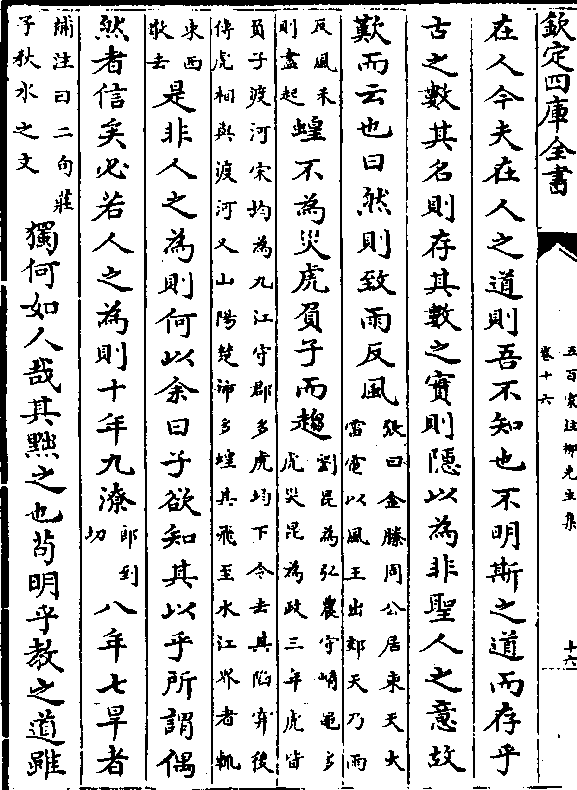 欽定四庫全書
五百家注柳先生集
卷十六
十六
在人今夫在人之道則吾不知也不明斯之道而存乎
古之數其名則存其數之實則隱以為非聖人之意故
歎而云也曰然則致雨反風
張曰金縢周公居東天大
雷電以風王出郊天乃雨
反風禾
則盡起
蝗不為災虎負子而趨
劉昆為弘農守崤黽多
虎災昆為政三年虎皆
負子渡河宋均為九江守郡多虎均下令去其陷穽後
傳虎相與渡河又山陽楚沛多蝗其飛至水江界者輒
東西
散去
是非人之為則何以余曰子欲知其以乎所謂偶
然者信矣必若人之為則十年九潦
郎到
切
八年七旱者
補注曰二句莊
子秋水之文
獨何如人哉其黜之也苟明乎教之道雖